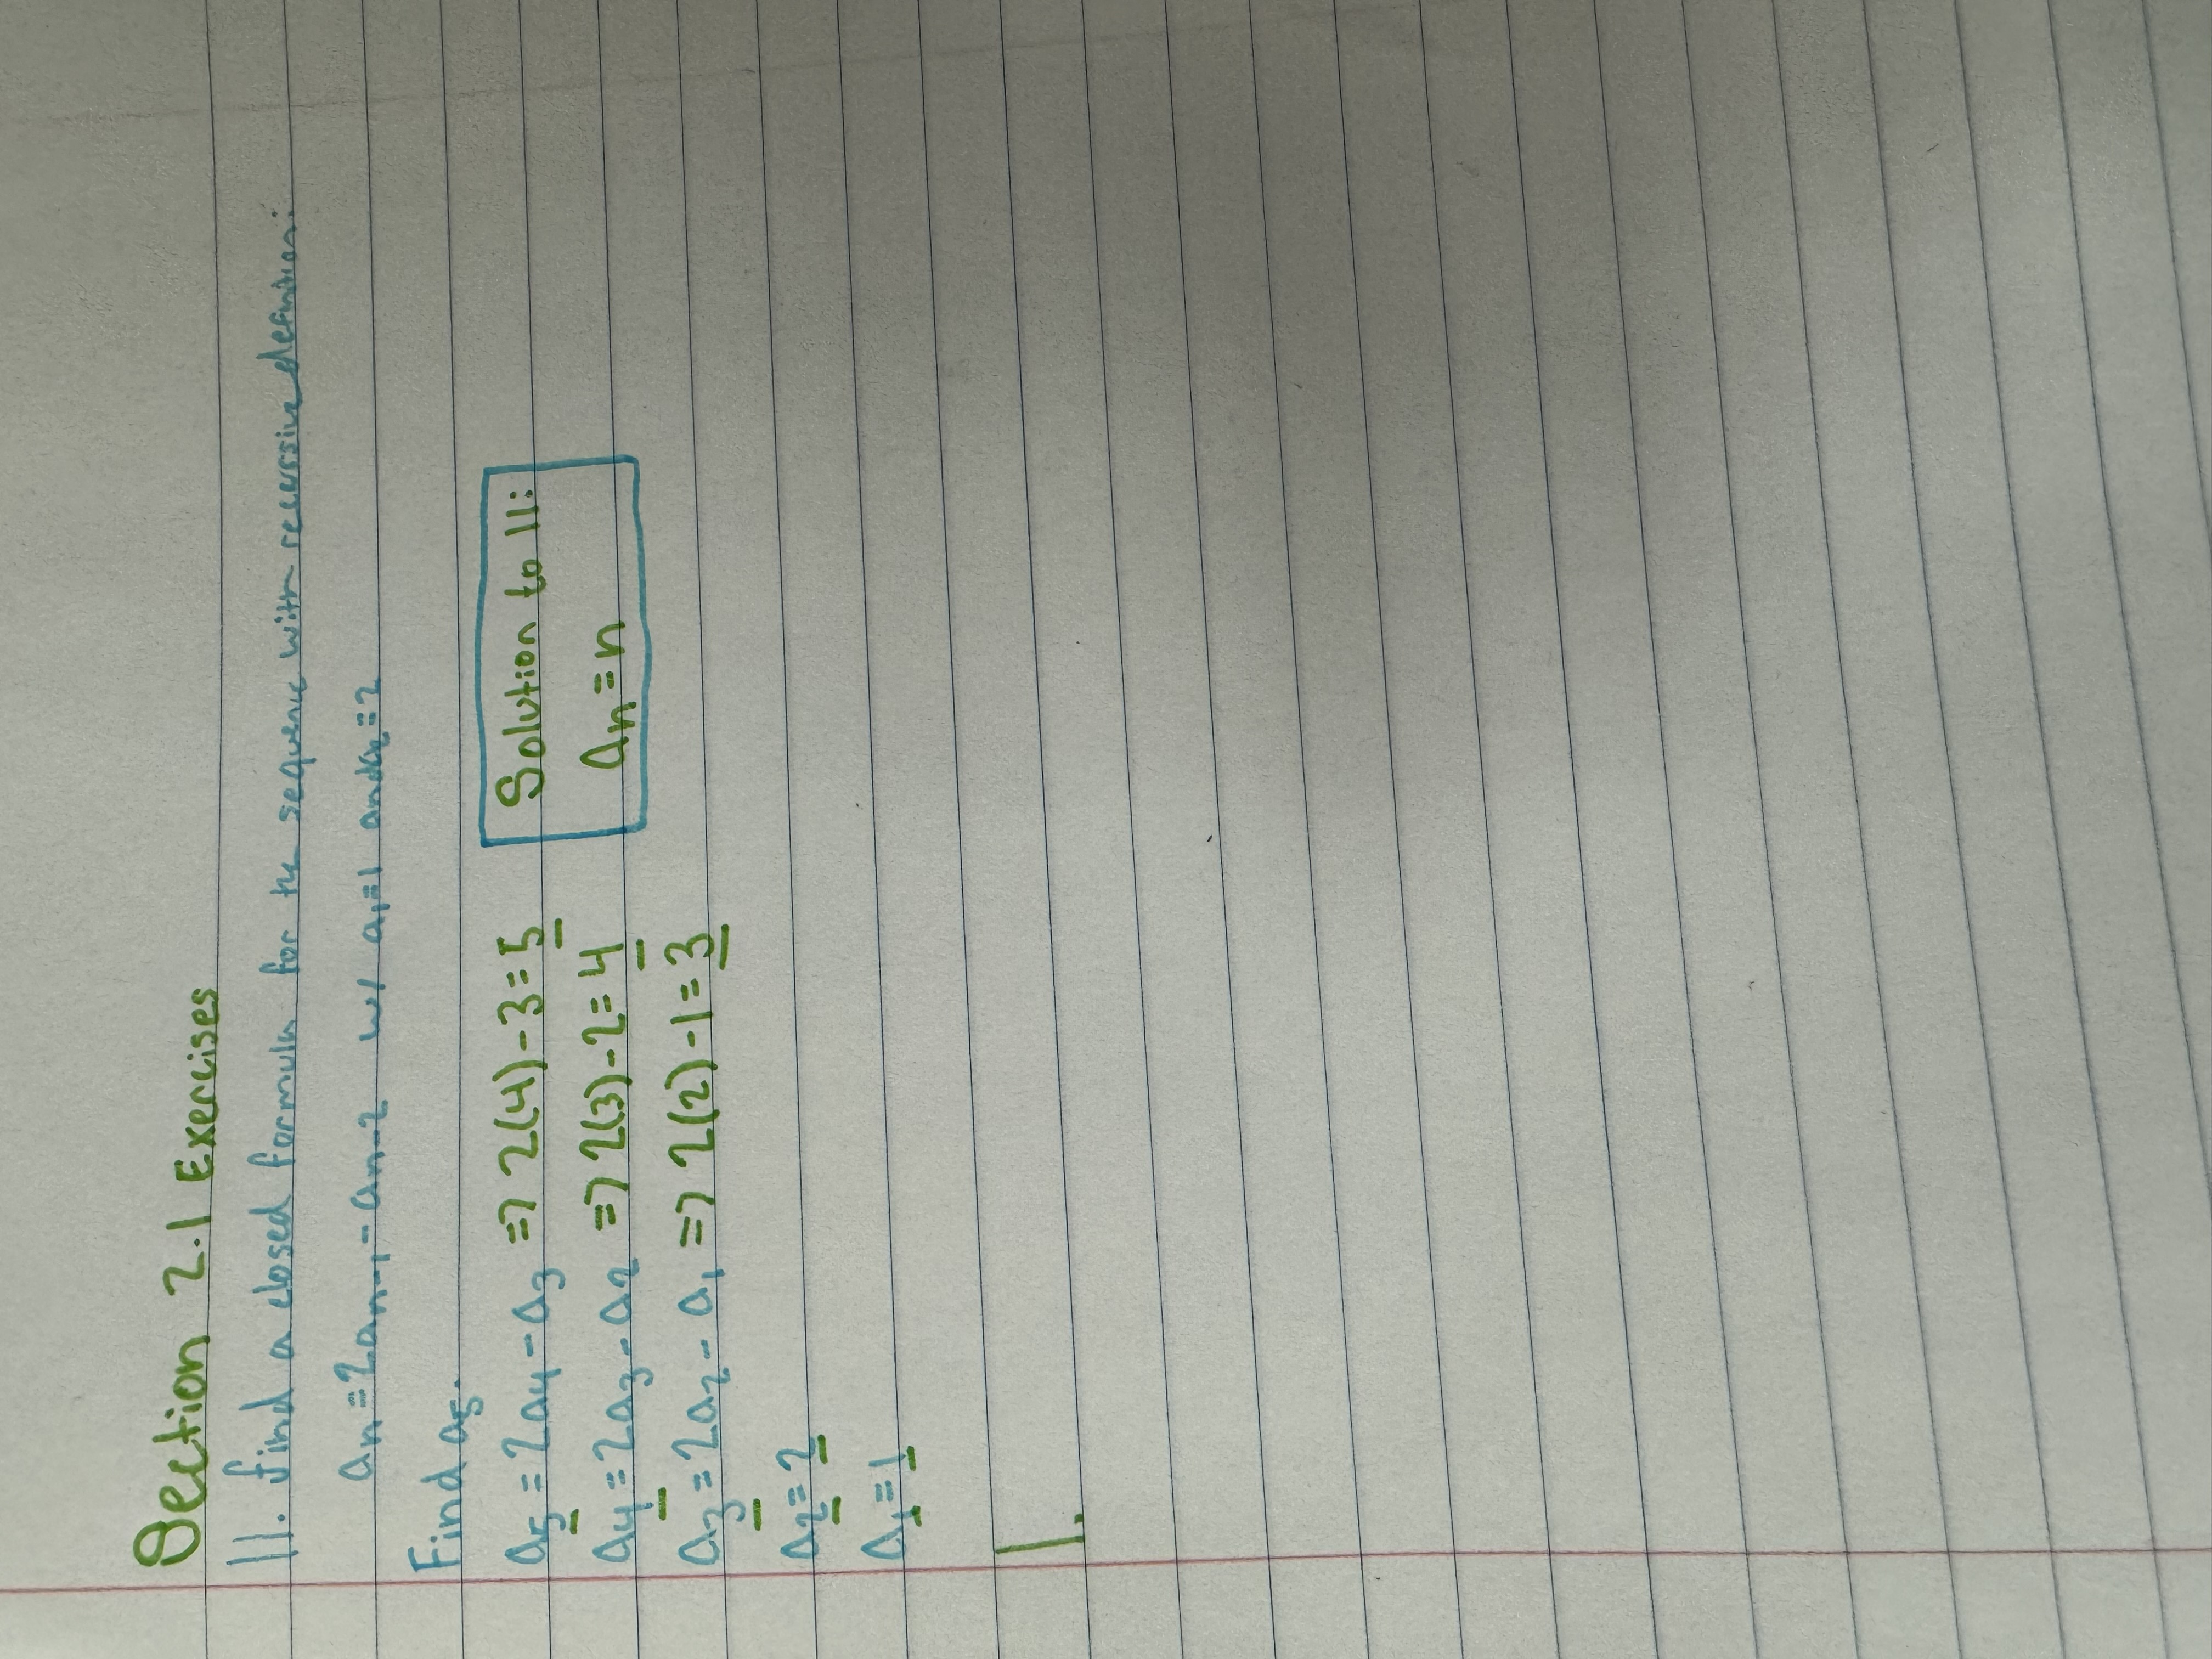 Section 2.1 Exercises
11. find a closed formula for the sequence with recursive definition:
aₙ = 2aₙ₋₁ - aₙ₋₂ w/ a₁=1 and a₂=2
Find a₅.
a₅ = 2a₄ - a₃ => 2(4)-3=5
a₄ = 2a₃ - a₂ => 2(3)-2=4
a₃ = 2a₂ - a₁ => 2(2)-1=3
a₂ = 2
a₁ = 1
Solution to 11:
aₙ = n
1.